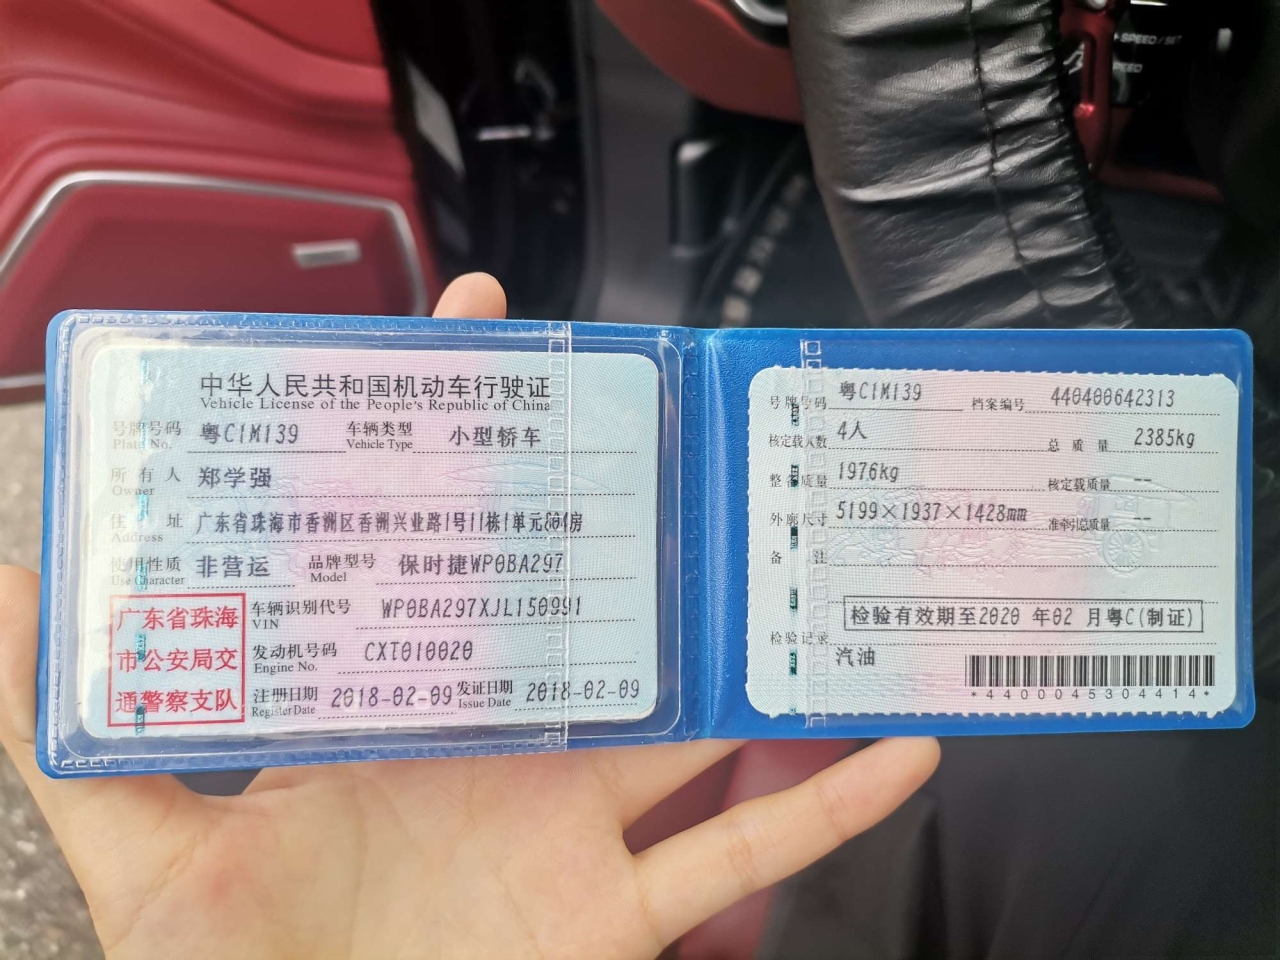 中华人民共和国机动车行驶证
Vehicle License of the People's Republic of China
号牌号码 粤C1M139 车辆类型 小型轿车
Plate No. Vehicle Type
所有人 郑学强
Owner
住址 广东省珠海市香洲区香洲兴业路1号11栋1单元804房
Address
使用性质 非营运 品牌型号 保时捷WP0BA297
Use Character Model
广东省珠海
市公安局交
通警察支队
车辆识别代号 WP0BA297XJL150991
VIN
发动机号码 CXT010020
Engine No.
注册日期 2018-02-09 发证日期 2018-02-09
Register Date Issue Date
号牌号码 粤C1M139 档案编号 440400642313
核定载人数 4人 总质量 2385kg
整备质量 1976kg 核定载质量 --
外廓尺寸 5199×1937×1428mm 准牵引总质量 --
备注
检验有效期至2020 年02 月粤C(制证)
检验记录
汽油
*4400045304414*
SPEED/SET